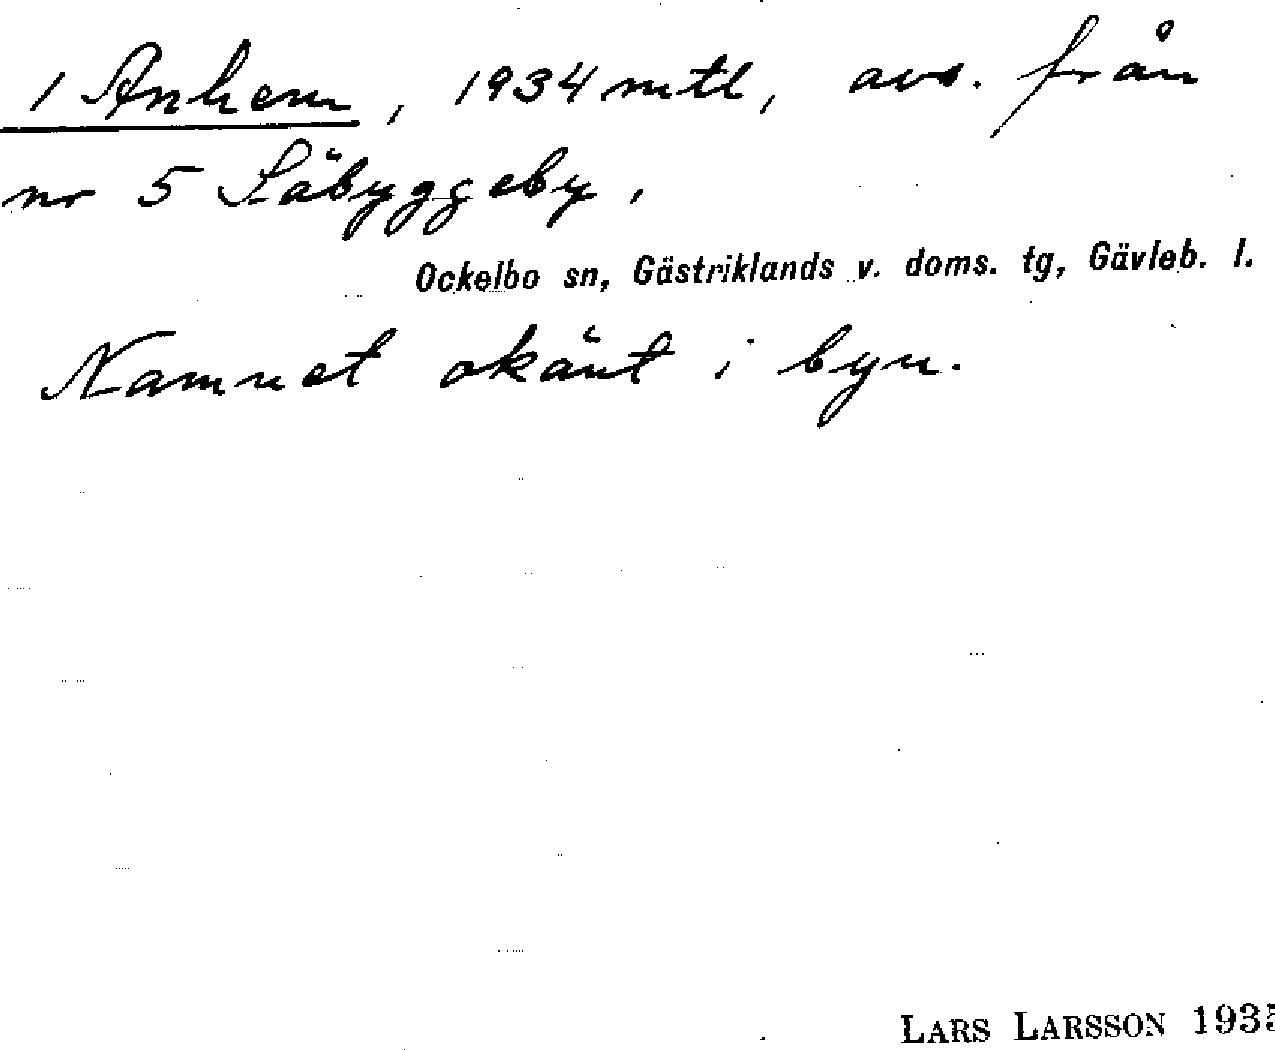 1 Anhem, 1934 mtl, avs. från
nr 5 Säbyggeby.
Ockelbo sn, Gästriklands v. doms. tg, Gävleb. l.
Namnet okänt i byn.
LARS LARSSON